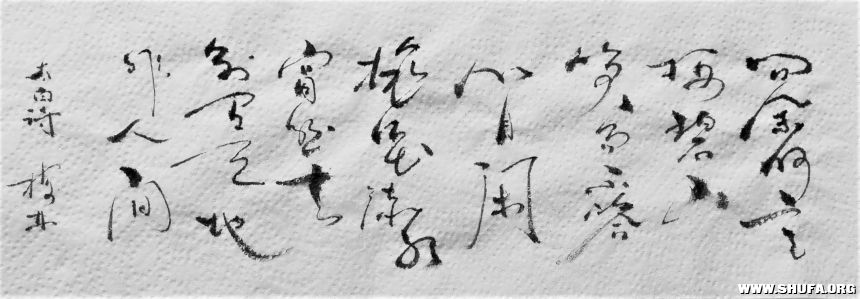 問余何意
栖碧山
笑而不答
心自閑
桃花流水
窅然去
別有天地
非人間
太白詩
WWW.SHUFA.ORG